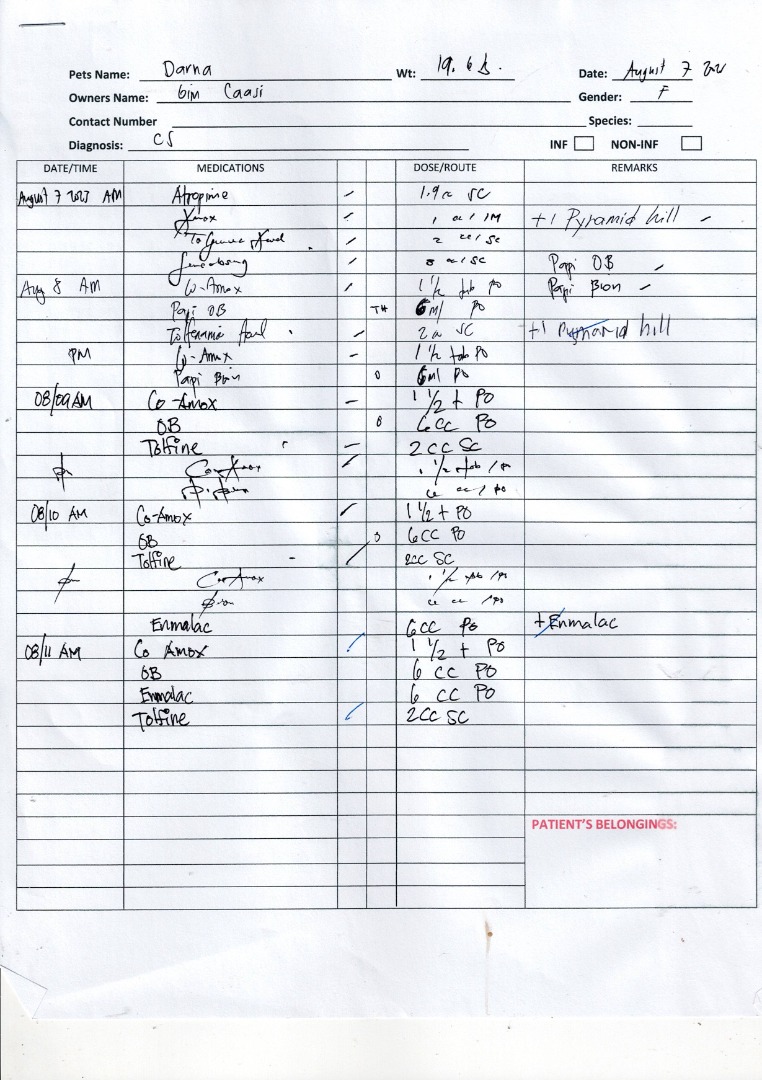 Pets Name: Darna Wt: 19.6 Date: August 7
Owners Name: Gim Caasi Gender: F
Contact Number Species:
Diagnosis: CS INF NON-INF
DATE/TIME MEDICATIONS DOSE/ROUTE REMARKS
August 7 2023 AM Atropine 1.9 SC
1 cc / IM +1 Pyramid hill
2 cc / SC
cc / SC Papi OB
Aug 8 AM Co-Amox 1 1/2 tab PO Papi Bion
Papi OB TH 6ml PO
Tolfenamic 2 SC +1 Pyramid hill
PM Co-Amox 1 1/2 tab PO
Papi Bion 0 6ml PO
08/09 AM Co-Amox 1 1/2 t PO
OB 0 6cc PO
Tolfine 2cc SC
Co-Amox 1 1/2 tab / PO
cc / PO
08/10 AM Co-Amox 1 1/2 t PO
OB 6cc PO
Tolfine 2cc SC
Co-Amox 1 1/2 tab / PO
cc / PO
Enmalac 6cc PO + Enmalac
08/11 AM Co Amox 1 1/2 t PO
OB 6 cc PO
Enmalac 6 cc PO
Tolfine 2cc SC
PATIENT'S BELONGINGS: